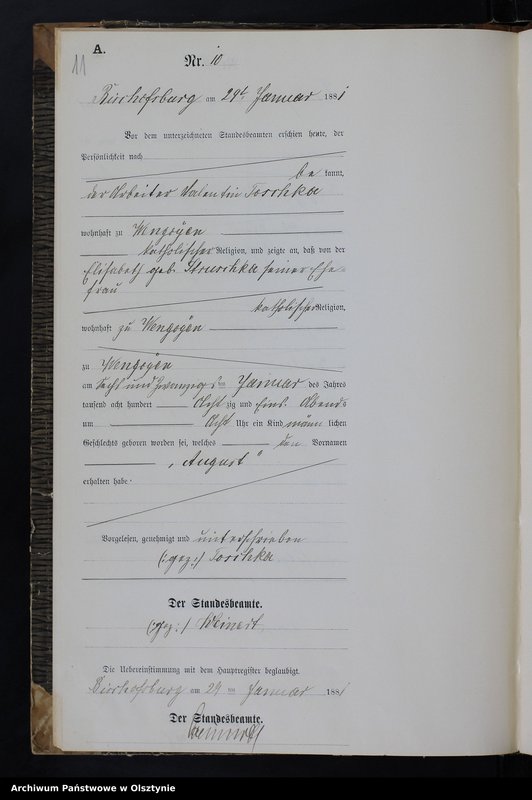 A.
11
Nr. 10
Bischofsburg am 29t Januar 1881
Vor dem unterzeichneten Standesbeamten erschien heute, der
Persönlichkeit nach
be kannt,
der Arbeiter Valentin Toschka
wohnhaft zu Wengoyen
katholischer Religion, und zeigte an, daß von der
Elisabeth geb. seiner Ehe-
frau
katholischer Religion,
wohnhaft zu Wengoyen
zu Wengoyen
am sechs und zwanzigsten Januar des Jahres
tausend acht hundert acht zig und Eins Abends
um acht Uhr ein Kind männ lichen
Geschlechts geboren worden sei, welches den Vornamen
„August“
erhalten habe.
Vorgelesen, genehmigt und unterschrieben
(:gez:) Toschka
Der Standesbeamte.
(:gez:) Weinert
Die Uebereinstimmung mit dem Hauptregister beglaubigt.
Bischofsburg am 29 ten Januar 1881
Der Standesbeamte.
Archiwum Państwowe w Olsztynie